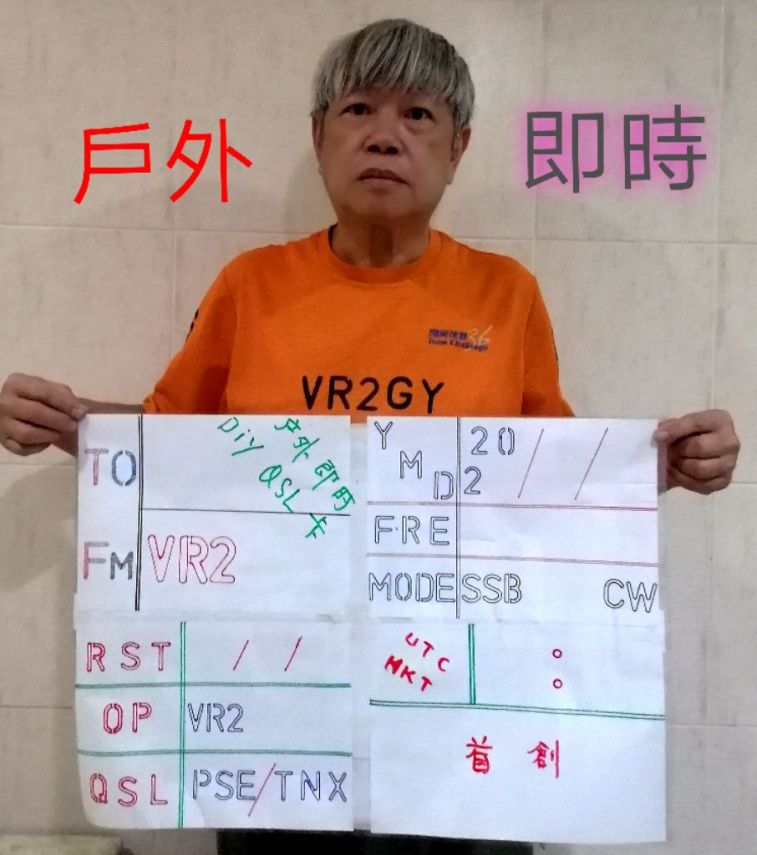 戶外
即時
36
VR2GY
TO
戶外即時
DiY QSL 卡
FM VR2
Y M D 20 2 / /
FRE
MODE SSB CW
RST / /
OP VR2
QSL PSE/TNX
UTC
HKT
:
首創